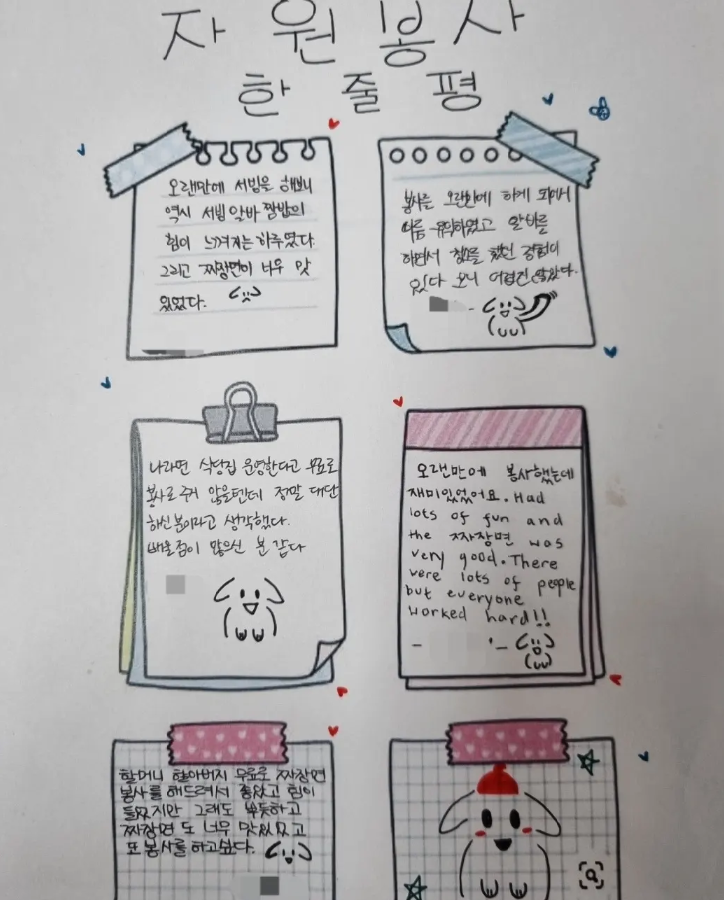 자원봉사
한 줄 평
오랜만에 서빙을 해보니
역시 서빙알바 짬밥의
힘이 느껴지는 하루였다.
그리고 짜장면이 너무 맛
있었다.
봉사를 오랜만에 하게 되어서
나름 유익하였고 알바를
하면서 청소를 했던 경험이
있다 보니 어렵진 않았다.
나라면 식당집 운영한다고 무료로
봉사로 주거 않을텐데 정말 대단
하신분이라고 생각했다.
배울점이 많으신 분 같다
오랜만에 봉사했는데
재미있었어요. Had
lots of fun and
the 짜장면 was
very good. There
were lots of people
but everyone
worked hard!!
할머니 할아버지 무료로 짜장면
봉사를 해드려서 좋았고 힘이
들었지만 그래도 뿌듯하고
짜장면도 너무 맛있었고
또 봉사를 하고싶다.